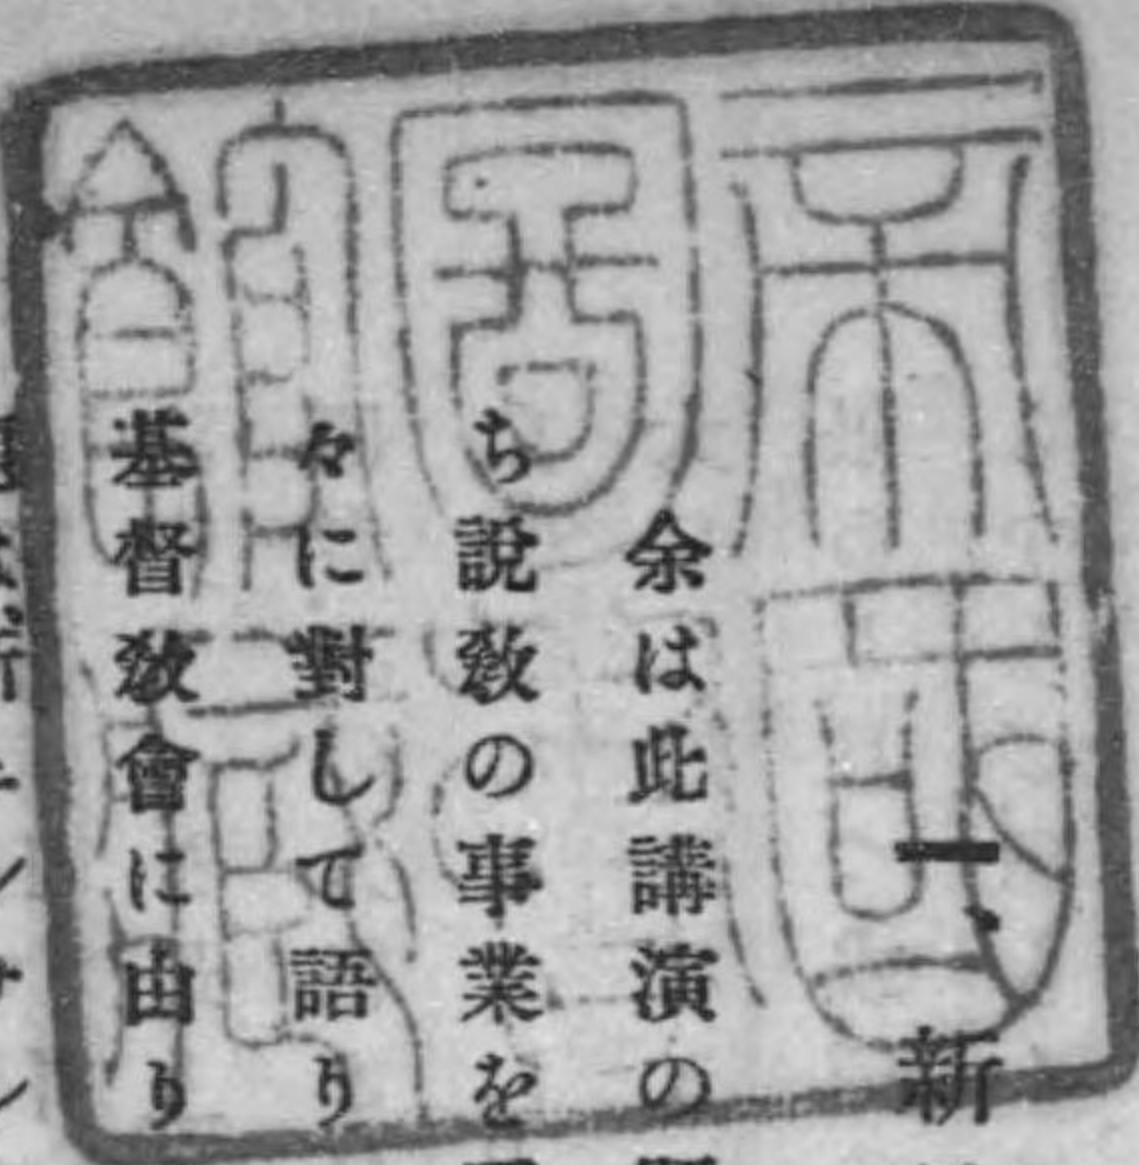 一、新
余は此講演の
ち說敎の事業を
々に對して語り
基督敎會に由り
帝國圖書館藏